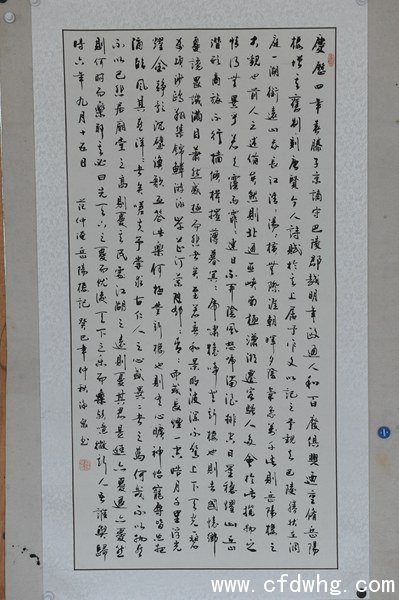 慶歷四年春滕子京謫守巴陵郡越明年政通人和百廢俱興迺重脩岳陽
樓增其舊制刻唐賢今人詩賦於其上屬予作文以記之予觀夫巴陵勝狀在洞
庭一湖銜遠山吞長江浩浩湯湯橫無際涯朝暉夕陰氣象萬千此則岳陽樓之
大觀也前人之述備矣然則北通巫峽南極瀟湘遷客騷人多會於此覽物之
情得無異乎若夫霪雨霏霏連月不開陰風怒號濁浪排空日星隱耀山岳
潛形商旅不行檣傾楫摧薄暮冥冥虎嘯猿啼登斯樓也則有去國懷鄉
憂讒畏譏滿目蕭然感極而悲者矣至若春和景明波瀾不驚上下天光一碧
萬頃沙鷗翔集錦鱗游泳岸芷汀蘭郁郁青青而或長煙一空皓月千里浮光
躍金靜影沉璧漁歌互答此樂何極登斯樓也則有心曠神怡寵辱皆忘把
酒臨風其喜洋洋者矣嗟夫予嘗求古仁人之心或異二者之為何哉不以物喜
不以己悲居廟堂之高則憂其民處江湖之遠則憂其君是進亦憂退亦憂然
則何時而樂耶其必曰先天下之憂而憂後天下之樂而樂歟噫微斯人吾誰與歸
時六年九月十五日 范仲淹岳陽樓記 癸巳年仲秋海泉书
www.cfdwhg.com